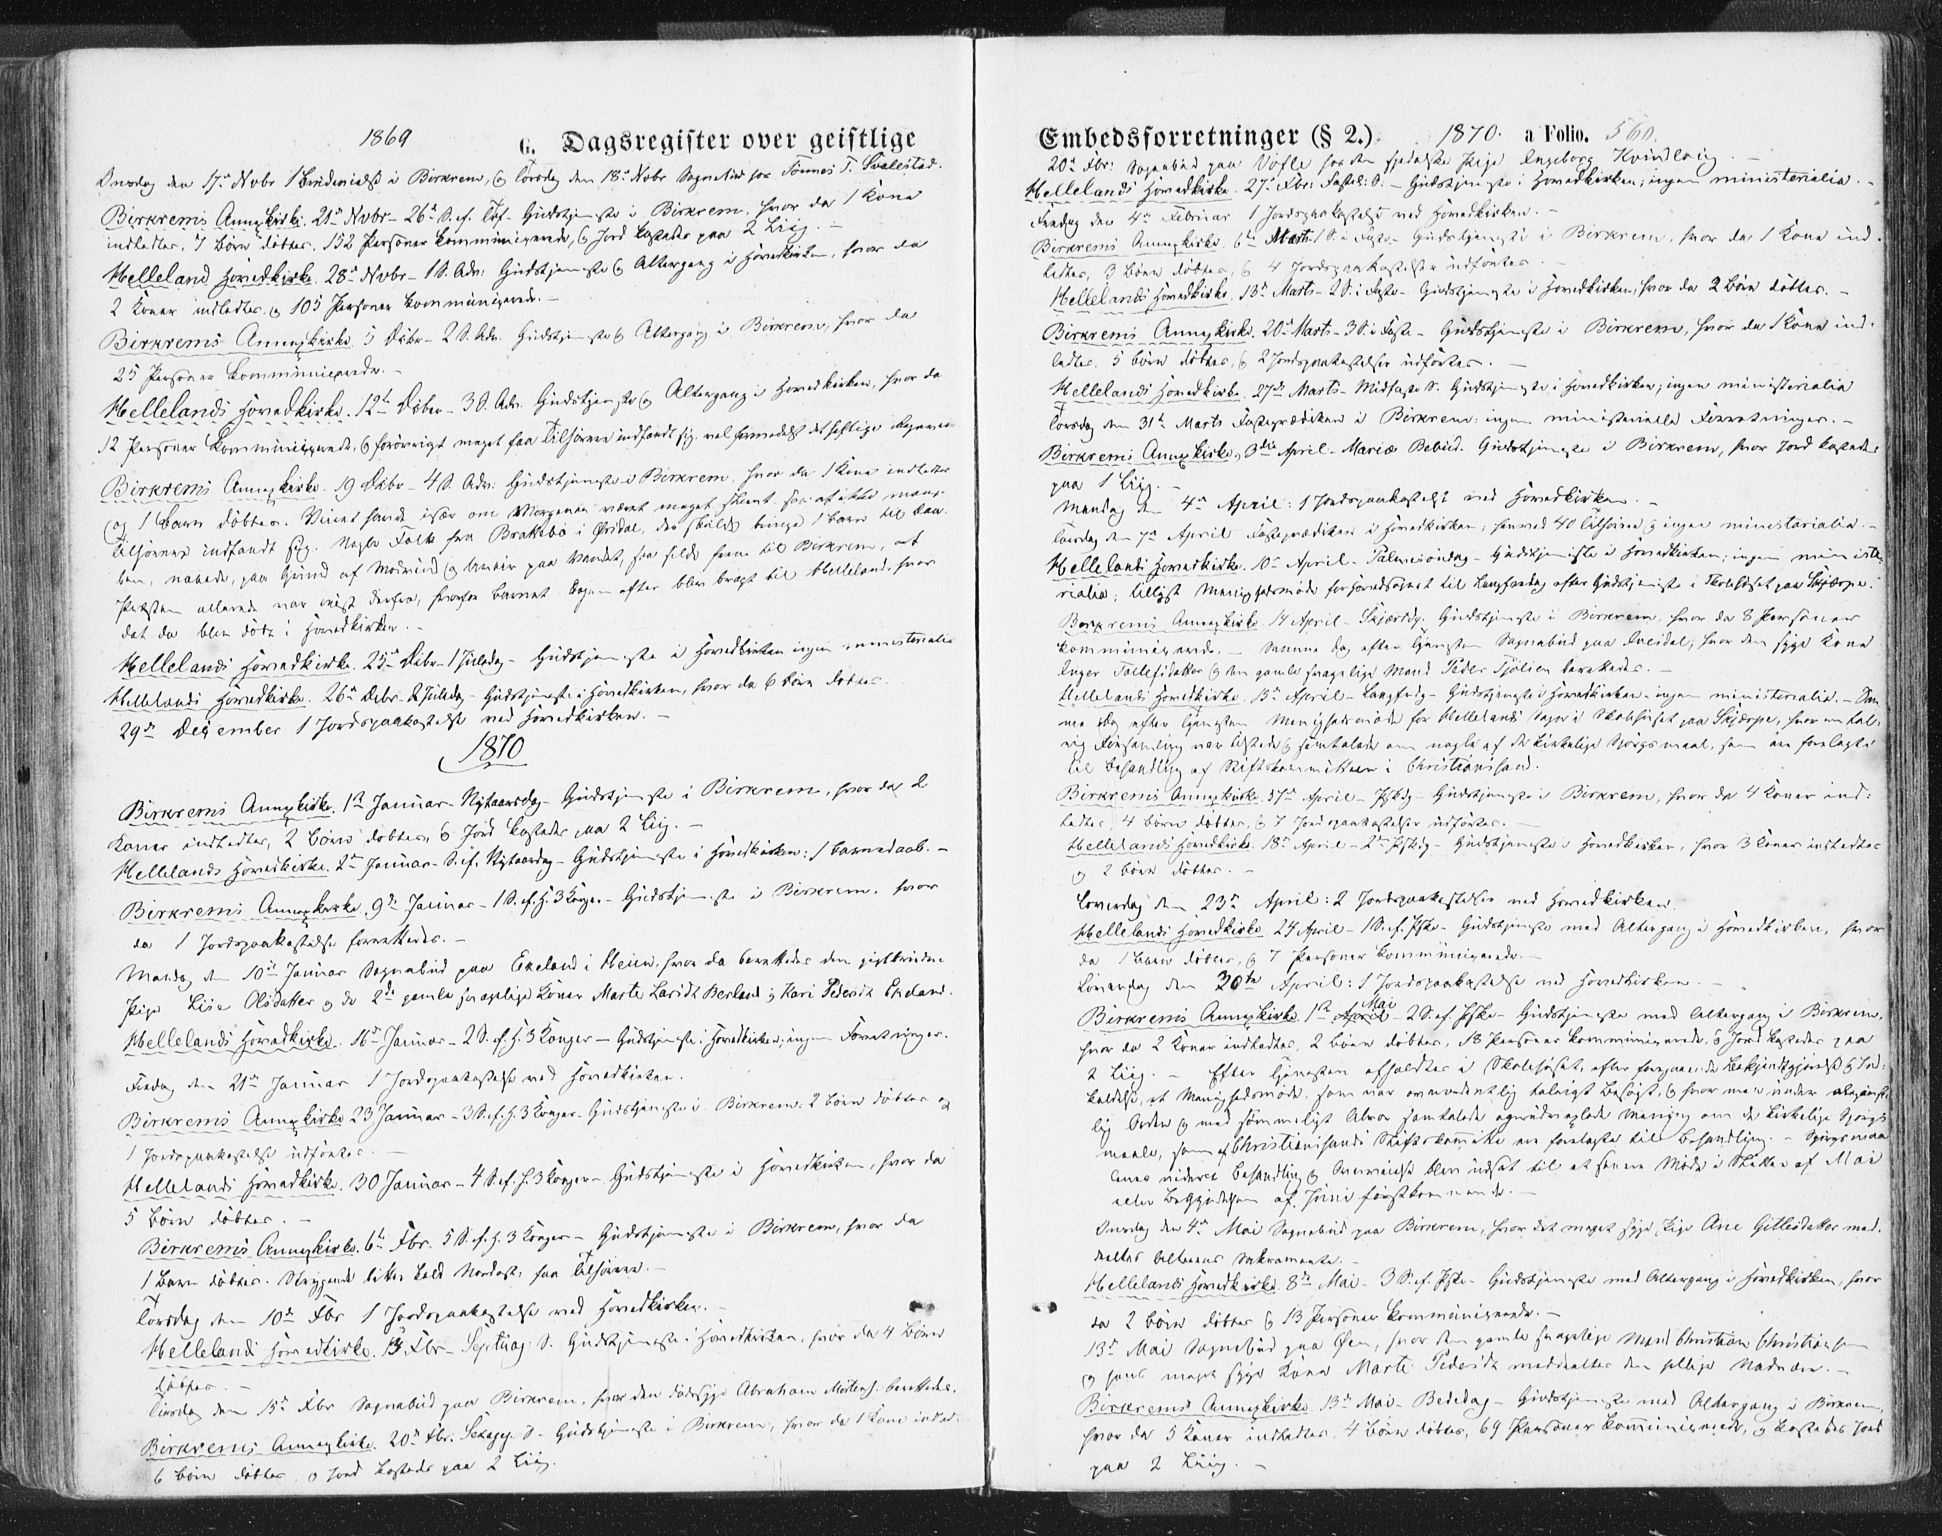 1869
G. Dagsregister over geistlige
Onsdag den 17de Novbr 1 i Birkrem, og Torsdag den 18de Novbr Sognebud hos Tönnes T. Svalestad.
Birkrems Annexkirke. 21de Novbr - 26de S. ef. Tref. Gudstjeneste i Birkrem, hvor da 1 Kone
indledtes, 7 Börn döbtes, 152 Personer kommunicerede, og Jord kastedes paa 2 Liig. -
Helleland Hovedkirke. 28de Novbr - 1 S. Adv: Gudstjeneste og Altergang i Hovedkirken, hvor da
2 Koner indledtes, og 105 Personer kommunicerede. -
Birkrems Annexkirke 5 Debr - 2 S. Adv. Gudstjeneste og Altergang i Birkrem, hvor da
25 Personer kommunicerede. -
Hellelands Hovedkirke. 12te Debr - 3 S. Adv. Gudstjeneste og Altergang i Hovedkirken, hvor da
12 Personer kommunicerede. og forövrigt meget faa Tilhörere indfandt sig, vel formedelst det heftige
Birkrems Annexkirke. 19 Debr - 4 S. Adv: Gudstjeneste i Birkrem, hvor da 1 Kone indledtes
og 1 Barn döbtes. havde især om Morgenen været meget slemt, saa at ikke mange
Tilhörere indfandt sig. Nogle Folk fra Brakebö i Örsdal, der skulde bringe 1 Barn til Daa-
ben, naaede, paa Grund af Modvind og paa Vandet, saa silde frem til Birkrem, at
Præsten allerede var reist derfra, hvorfor Barnet Dagen efter blev bragt til Helleland, hvor
det da blev döbt i Hovedkirken. -
Hellelands Hovedkirke. 25de Debr - 1 Juledag - Gudstjeneste i Hovedkirken ingen ministerialia
Hellelands Hovedkirke. 26de Debr. 2 Juledag - Gudstjeneste i Hovedkirken, hvor da 6 Börn döbtes.
29de December 1 Jordspaakastelse ved Hovedkirken. -
1870
Birkrems Annexkirke. 1ste Januar - Nytaarsdag - Gudstjeneste i Birkrem, hvor da 2
Koner indledtes, 2 Börn döbtes, og Jord kastedes paa 2 Liig. -
Hellelands Hovedkirke. 2den Januar - S. ef. Nytaarsdag - Gudstjeneste i Hovedkirken: 1 Barnedaab. -
Birkrems Annexkirke, 9de Januar - 1 S. ef. H. 3 Konger - Gudstjeneste i Birkrem, hvor
da 1 Jordspaakastelse forrettedes. -
Mandag den 10de Januar Sognebud paa Eikeland i Heien, hvor da berettedes den
Pige Lise Olsdatter og de 2de gamle svagelige Koner Marte Larsdt Berland og Kari Pedersdt Eikeland.
Hellelands Hovedkirke. 16de Januar - 2 S. ef. H. 3 Konger - Gudstjeneste i Hovedkirken; ingen Forretninger.
Fredag den 21de Januar 1 Jordspaakastelse ved Hovedkirken.
Birkrems Annexkirke 23 Januar - 3 S. ef. H. 3 Konger. Gudstjeneste i Birkrem: 2 Börn döbtes og
1 Jordspaakastelse udförtes. -
Hellelands Hovedkirke. 30 Januar - 4 S. ef. H. 3 Konger - Gudstjeneste i Hovedkirken, hvor da
5 Börn döbtes. -
Birkrems Annexkirke. 6te Fbr. 5 S. ef. H. 3 Konger - Gudstjeneste i Birkrem, hvor da
1 Barn döbtes. kold Nordost: faa Tilhörere. -
Torsdag den 10de Fbr 1 Jordspaakastelse ved Hovedkirken. -
Hellelands Hovedkirke. 13 Fbr - Septuag: S. Gudstjeneste i Hovedkirken, hvor da 4 Börn
döbtes. -
Tirsdag den 15de Fbr Sognebud paa Birkrem, hvor den dödssyge Abraham Mortens. berettedes.
Birkrems Annexkirke. 20de Fbr. Sexages. S - Gudstjeneste i Birkrem, hvor da 1 Kone indled
6 Börn döbtes, og Jord kastedes paa 2 Liig.
Embedsforretninger (§ 2.) 1870. a Folio. 560.
20de Fbr: Sognebud paa hos den Pige Ingeborg
Hellelands Hovedkirke. 27de Fbr: Fastel: S. - Gudstjeneste i Hovedkirken; ingen ministerialia. -
Fredag den 4de Februar 1 Jordspaakastelse ved Hovedkirken. -
Birkrems Annexkirke. 6te Marts - 1 S. i Faste - Gudstjeneste i Birkrem, hvor da 1 Kone ind-
ledtes, 3 Börn döbtes, og 4 Jordspaakastelser udförtes. -
Hellelands Hovedkirke. 13de Marts - 2 S. i Faste - Gudstjeneste i Hovedkirken, hvor da 2 Börn döbtes. -
Birkrems Annexkirke. 20de Marts - 3 S. i Faste - Gudstjeneste i Birkrem, hvor da 1 Kone ind-
ledtes, 5 Börn döbtes, og 2 Jordspaakastelser udförtes. -
Hellelands Hovedkirke. 27de Marts - Midfaste S. Gudstjeneste i Hovedkirken; ingen ministerialia
Torsdag den 31te Marts Fasteprædiken i Birkrem: ingen ministerielle Forretninger. -
Birkrems Annexkirke, 3die April. Mariæ Bebud. Gudstjeneste i Birkrem, hvor Jord kastedes
paa 1 Liig. -
Mandag den 4de April: 1 Jordspaakastelse ved Hovedkirken. -
Torsdag den 7de April Fasteprædiken i Hovedkirken; henved 40 Tilhörere og ingen ministerialia. -
Hellelands Hovedkirke. 10de April - Palmesöndag - Gudstjeneste i Hovedkirken; ingen ministe-
rialia; tillyst Menighedsmöde for Hovedsognet til Langfredag efter Gudstjeneste i Skolehuset paa Skjærpe.
Birkrems Annexkirke 14 April - Skjærtdg. Gudstjeneste i Birkrem, hvor da 8 Personer
kommunicerede. - Samme Dag efter Tjenesten Sognebud paa hvor den syge Kone
Inger Tollefsdatter og den gamle svagelige Mand Peder Tjölien berettedes. -
Hellelands Hovedkirke. 15de April - Langfrdg - Gudstjeneste i Hovedkirken. ingen ministerialia. - Sam-
me Dag efter Tjenesten Menighedsmöde for Hellelands Sogn i Skolehuset paa Skjærpe, hvor en tal-
rig Forsamling var tilstede og samtalede om nogle af de kirkelige Spörgsmaal, som ere forelagte
til Behandling af Stiftskommitteen i Christiansand.
Birkrems Annexkirke 17de April - Pskdg - Gudstjeneste i Birkrem, hvor da 4 Koner ind-
ledtes, 4 Börn döbtes, og 7 Jordspaakastelser udförtes. -
Hellelands Hovedkirke. 18de April - 2den Pskdg - Gudstjeneste i Hovedkirken, hvor 3 Koner indledtes
og 2 Börn döbtes. -
Löverdag den 23de April: 2 Jordspaakastelser ved Hovedkirken.
Hellelands Hovedkirke. 24 April - 1 S. ef. Pske - Gudstjeneste med Altergang i Hovedkirken, hvor
da 1 Barn döbtes, og 7 Personer kommunicerede. -
Löverdag den 30te April: 1 Jordspaakastelse ved Hovedkirken. -
Birkrems Annexkirke. 1ste April Mai - 2 S. ef. Pske - Gudstjeneste med Altergang i Birkrem,
hvor da 2 Koner indledtes, 2 Börn döbtes, 18 Personer kommunicerede, og Jord kastedes paa
2 Liig. - Efter Tjenesten afholdtes i Skolehuset, efter foregaaende Bekjendtgjörelse og Ind-
kaldelse, et Menighedsmöde, som var overordentlig talrigt besögt, og hvor man under
lig Orden og med sömmeligt Alvor samtalede og Mening om de kirkelige Spörgs-
maale, som af Christianssands Stiftskomite ere forelagte til Behandling. - Spörgsmaa-
lenes videre Behandling og blev udsat til et senere Möde i Slutten af Mai
eller Begyndelsen af Juni förstkommende. -
Onsdag den 4de Mai Sognebud paa Birkrem, hvor det meget syge Pige Ane Gitlesdatter med-
deeltes Alterens Sakramente. -
Hellelands Hovedkirke. 8de Mai - 3 S. ef. Pske - Gudstjeneste med Altergang i Hovedkirken, hvor
da 2 Börn döbtes og 13 Personer kommunicerede. -
13de Mai Sognebud paa Öen, hvor den gamle svagelige Mand Christian Christiansen
og hans meget syge Kone Marte Pedersdt meddeeltes den hellige Nadver. -
Birkrems Annexkirke. 13de Mai - Bededag - Gudstjeneste med Altergang i Birkrem,
hvor da 5 Koner indledtes, 4 Börn döbtes, 69 Personer kommunicerede, og kastedes Jord
paa 2 Liig. -